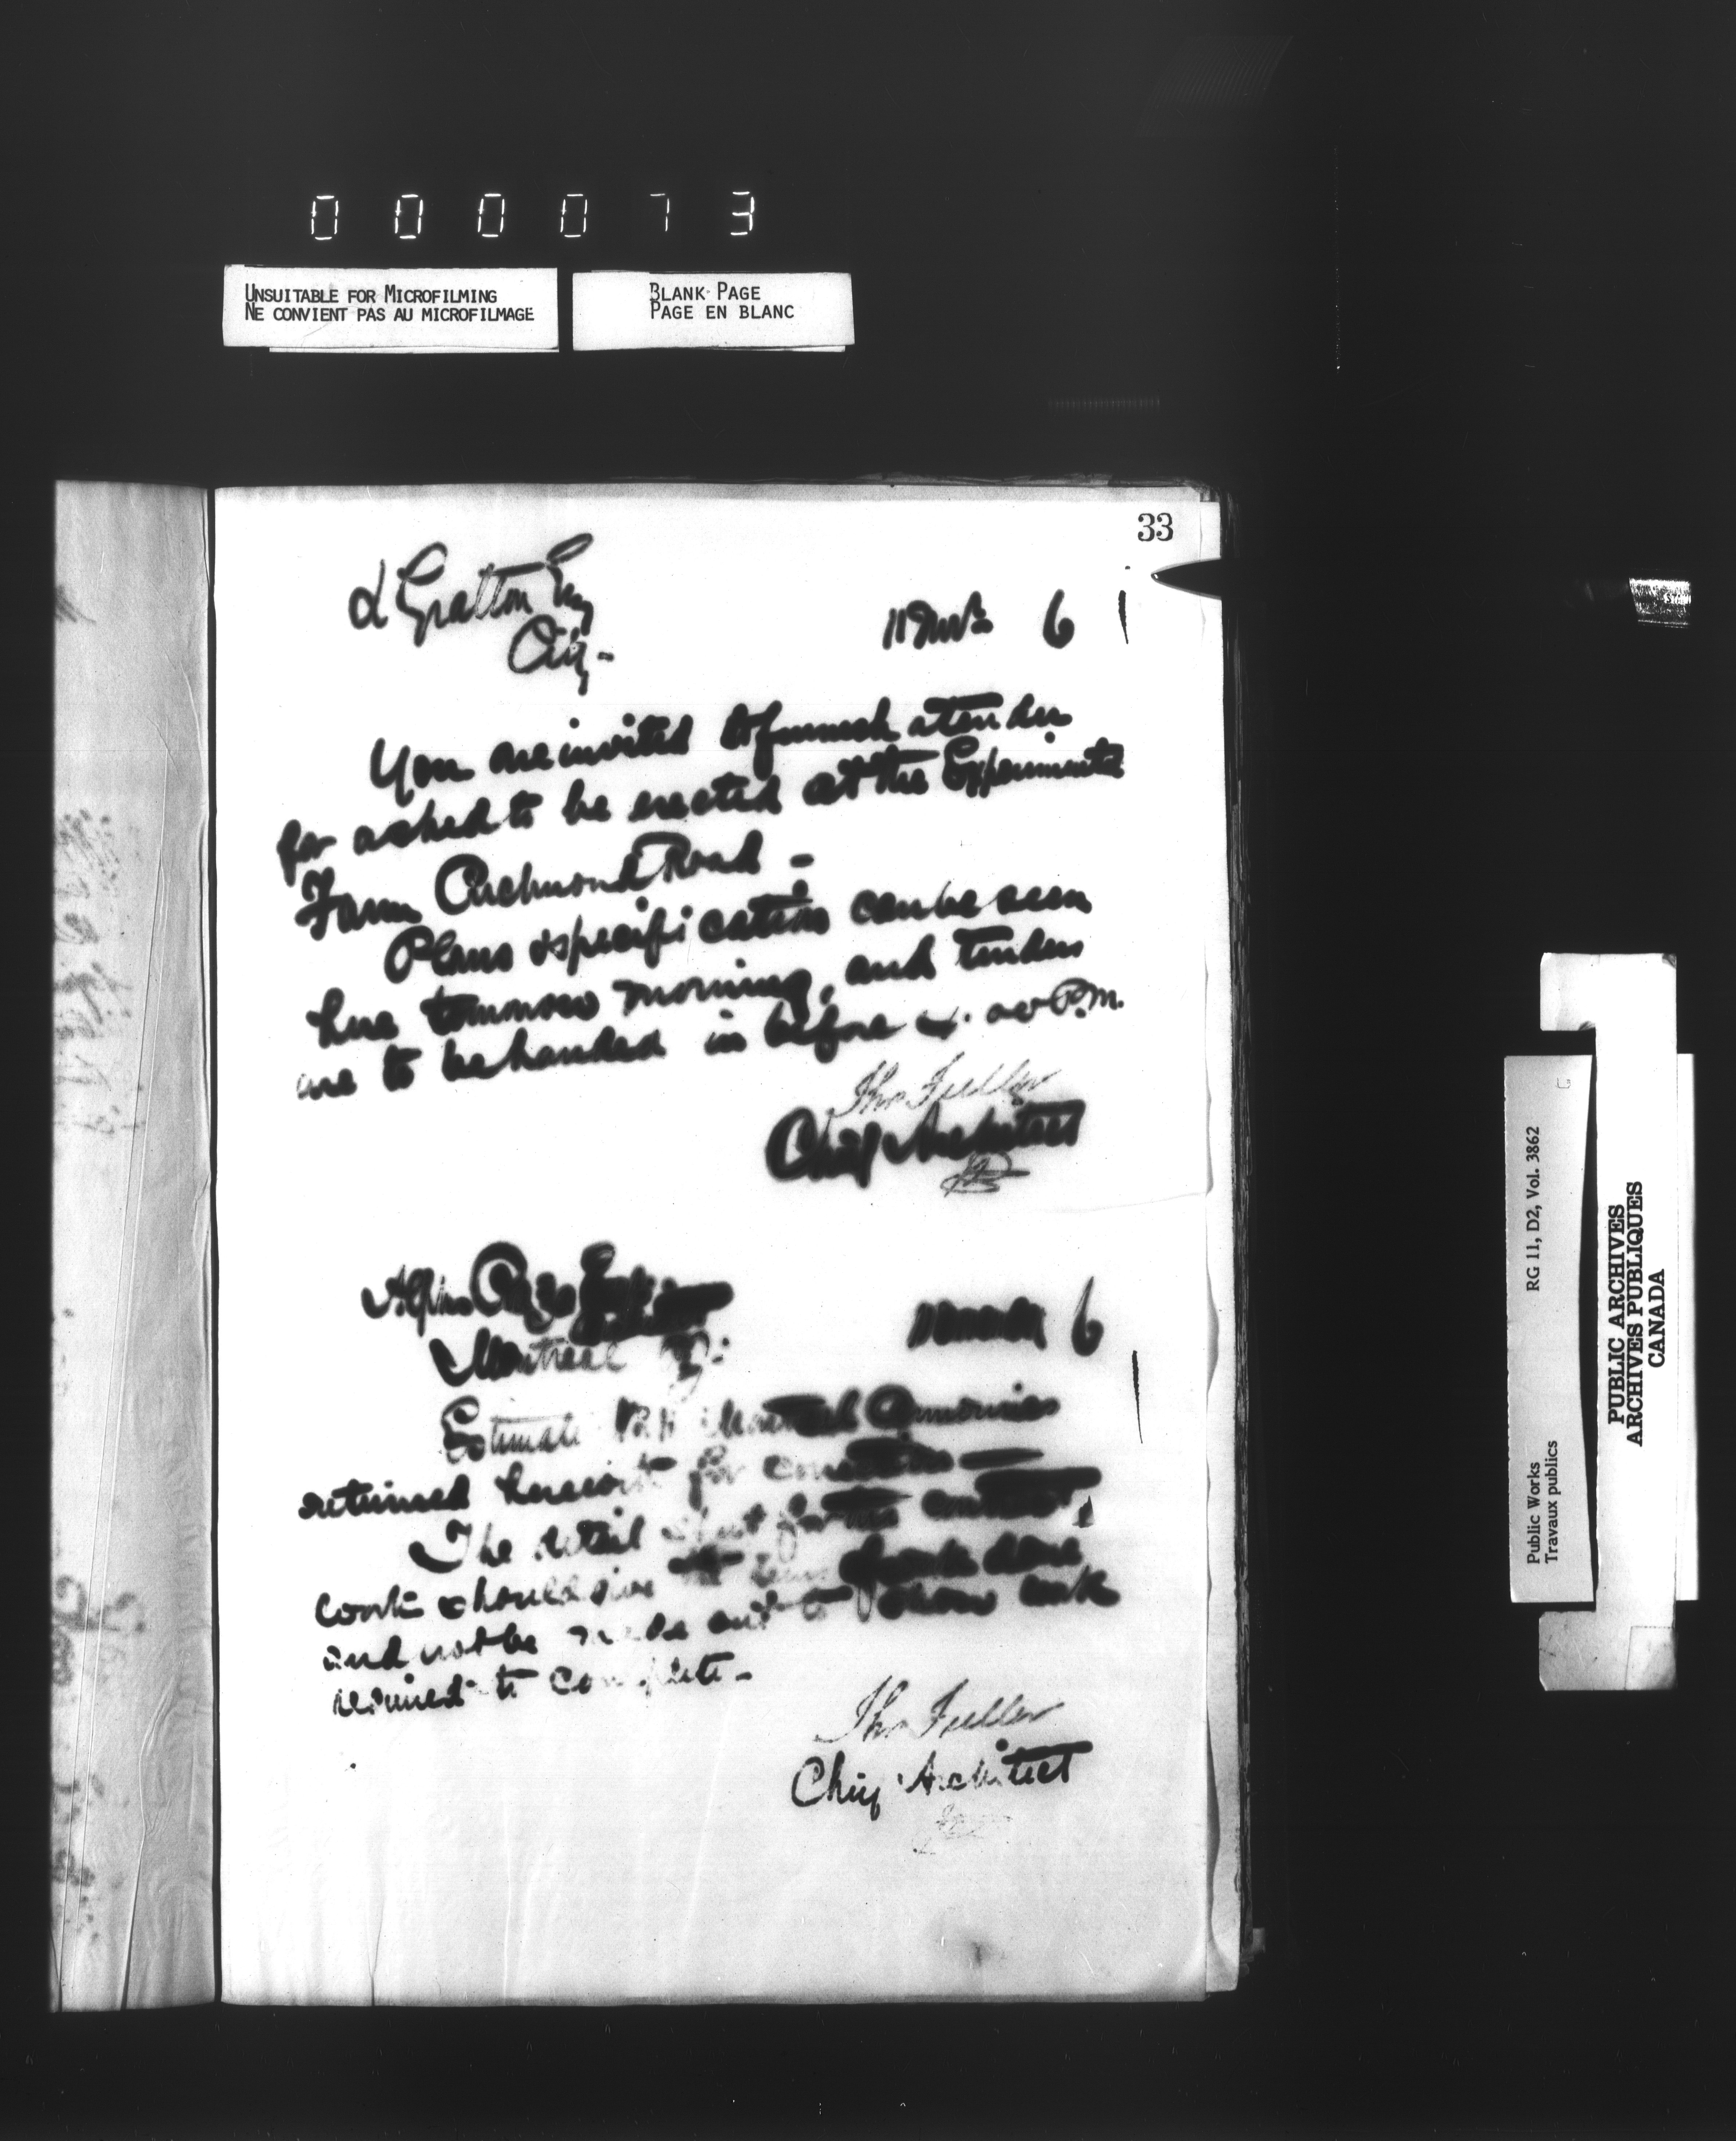 000073
UNSUITABLE FOR MICROFILMING
NE CONVIENT PAS AU MICROFILMAGE
BLANK PAGE
PAGE EN BLANC
33
L Gratton Esq
City-
11 6
You are invited to furnish a tender
for a shed to be erected at the Experimental
Farm Richmond Road -
Plans & specification can be seen
here tomorrow morning, and tenders
are to be handed in before 4.00 P.M.
Thos Fuller
Chief Architect
Montreal 6
Estimate Montreal Armouries
returned herewith for
The detail for this contract
work should give the work done
and not be made out to show work
required to complete-
Thos Fuller
Chief Architect
RG 11, D2, Vol. 3862
Public Works
Travaux publics
PUBLIC ARCHIVES
ARCHIVES PUBLIQUES
CANADA